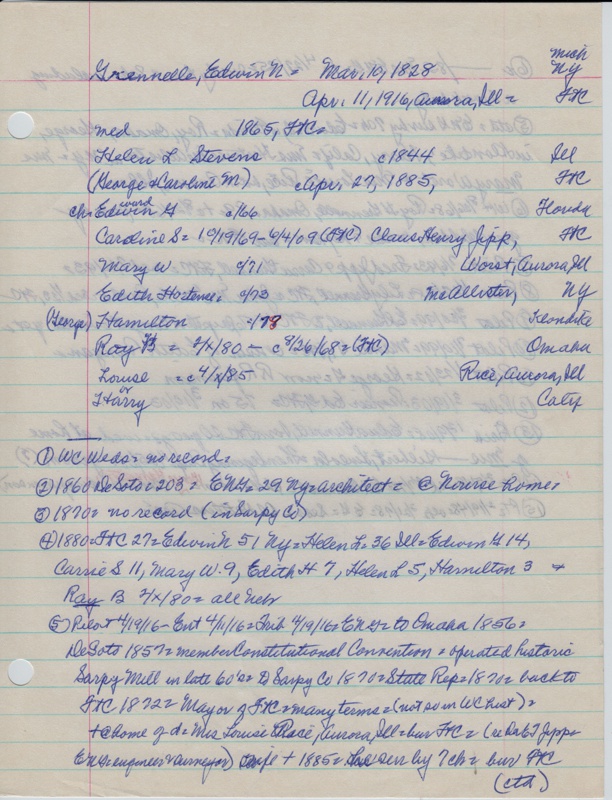 Mich
Grennelle, Edwin N = Mar. 10, 1828 NY
Apr. 11, 1916, Aurora, Ill = FtC
med 1865, FtC=
Helen L Stevens c1844 Ill
(George + Caroline M) Apr. 27, 1885, FtC
ch: Edwin H c/66 Florida
ward
Caroline S = 10/19/69 - 6/4/09 (FtC) Claus Henry Jipp, FtC
Mary W c/71 Worst, Aurora, Ill
Edith Hortense c/73 McAllister, NY
(George) Hamilton c/78 Klondike
Ray B = 2/x/80 - c 8/26/68 = (FtC) Omaha
Louise = c 4/x/85 Rice, Aurora, Ill
or
Harry Calif
① WC Weds = no record =
② 1860 DeSoto = 203 = ENG = 29 NY = architect = @ Nourse Rome =
③ 1870 = no record (in Sarpy Co)
④ 1880 = FtC 27 = Edwin N 51 NY = Helen L = 36 Ill = Edwin H 14,
Carrie S 11, Mary W. 9, Edith H 7, Helen L 5, Hamilton 3 +
Ray B 2/x/80 = all Neb
⑤ Pilot 4/19/16 - Ent 4/11/16 = Trib 4/19/16 = ENG = to Omaha 1856 =
DeSoto 1857 = member Constitutional Convention = operated historic
Sarpy Mill in late 60's = D Sarpy Co 1870 = State Rep = 1870 = back to
FtC 1872 = Mayor of FtC = many terms = (not so in WC hist) =
+ @ home of d = Mrs Louise Rice, Aurora, Ill = bur FtC = (re Dr ET Jipp =
ENG = engineer + surveyor) wife + 1885 = sur by 7 ch = bur FtC
(ctd)